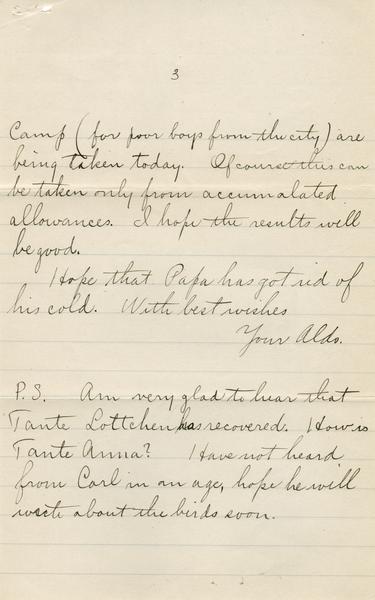 3
Camp (for poor boys from the city) are
being taken today. Of course this can
be taken only from accumalated
allowances. I hope the results will
be good.
Hope that Papa has got rid of
his cold. With best wishes
Your Aldo.
P.S. Am very glad to hear that
Tante Lottchen has recovered. How is
Tante Anna? Have not heard
from Carl in an age, hope he will
write about the birds soon.